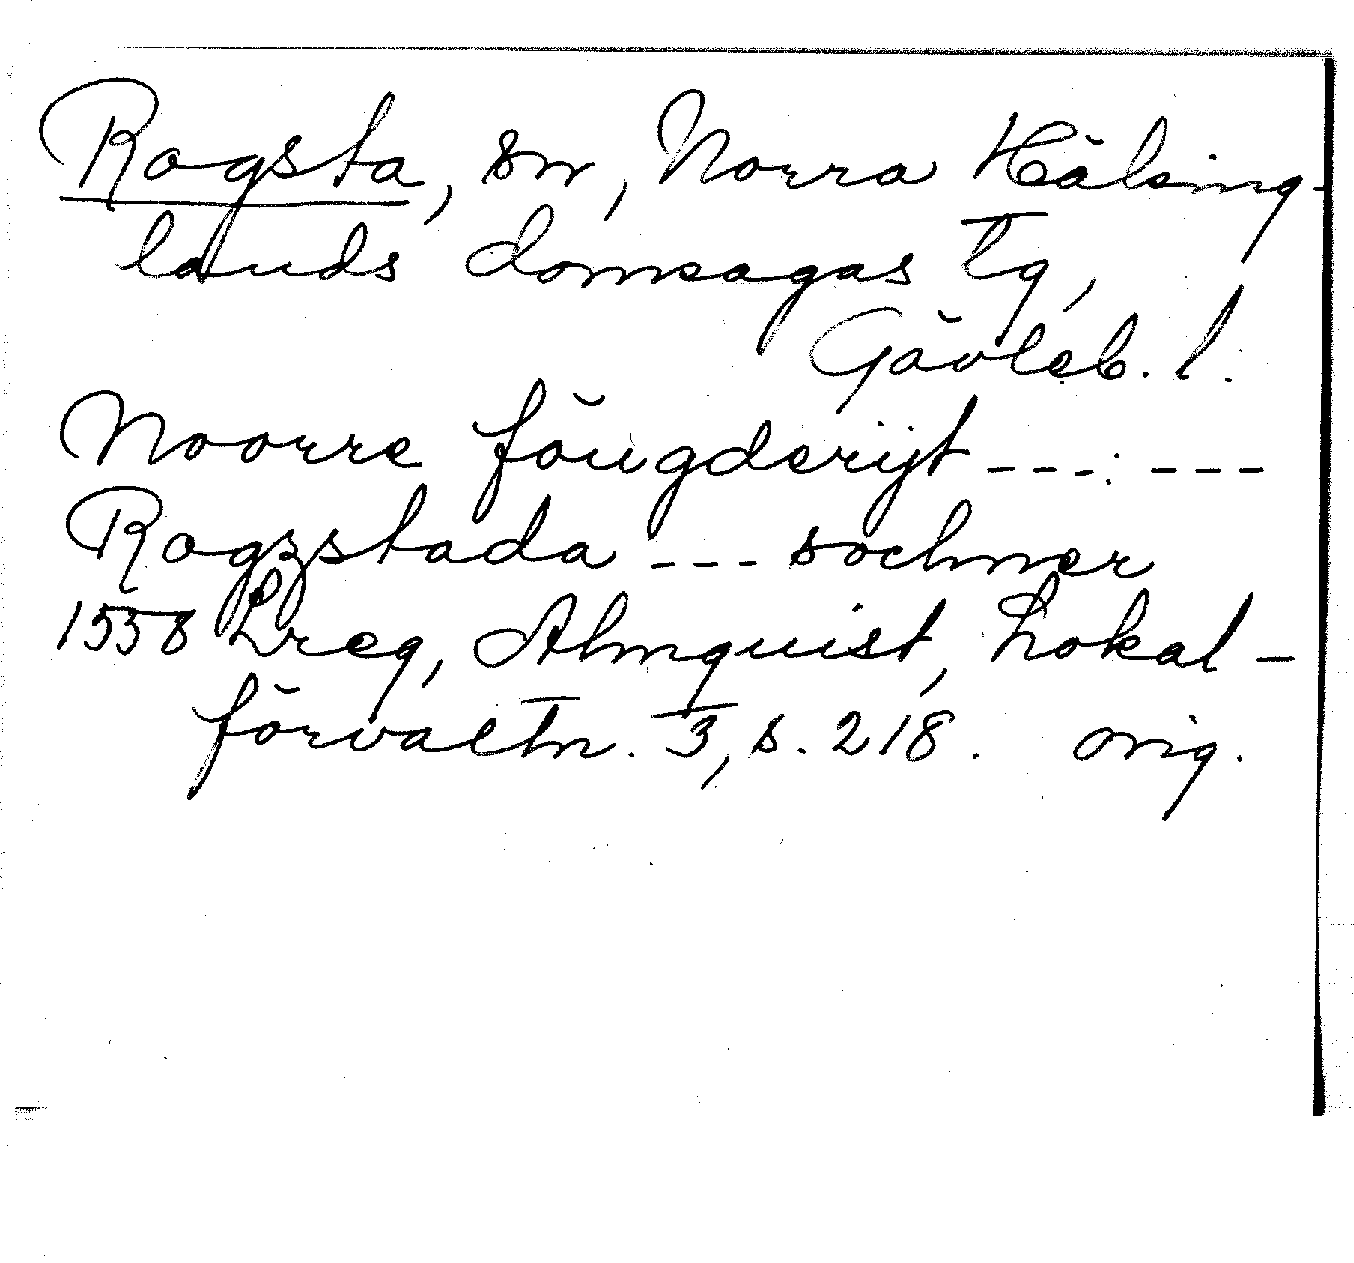 Rogsta, sn, Norra Hälsing-
lands domsagas tg,
Gävleb. l.
Noorre föugderijt --- : ---
Rogzstada --- sochner
1558 Lreg, Almquist, Lokal-
förvaltn. 3, s. 218. orig.